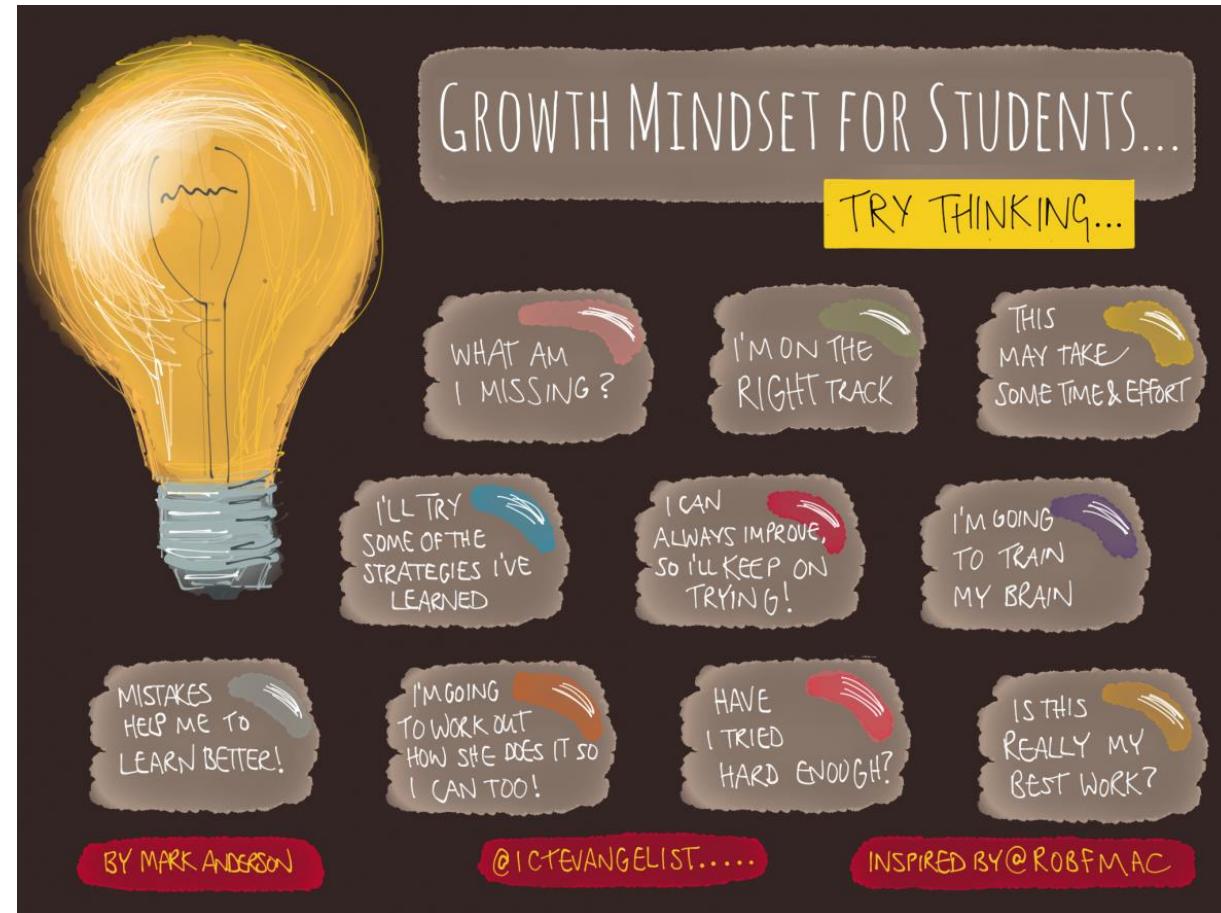 GROWTH MINDSET FOR STUDENTS...
TRY THINKING...
WHAT AM
I MISSING?
I'M ON THE
RIGHT TRACK
THIS
MAY TAKE
SOME TIME & EFFORT
I'LL TRY
SOME OF THE
STRATEGIES I'VE
LEARNED
I CAN
ALWAYS IMPROVE,
SO I'LL KEEP ON
TRYING!
I'M GOING
TO TRAIN
MY BRAIN
MISTAKES
HELP ME TO
LEARN BETTER!
I'M GOING
TO WORK OUT
HOW SHE DOES IT SO
I CAN TOO!
HAVE
I TRIED
HARD ENOUGH?
IS THIS
REALLY MY
BEST WORK?
BY MARK ANDERSON
@ICTEVANGELIST.....
INSPIRED BY @ROBFMAC